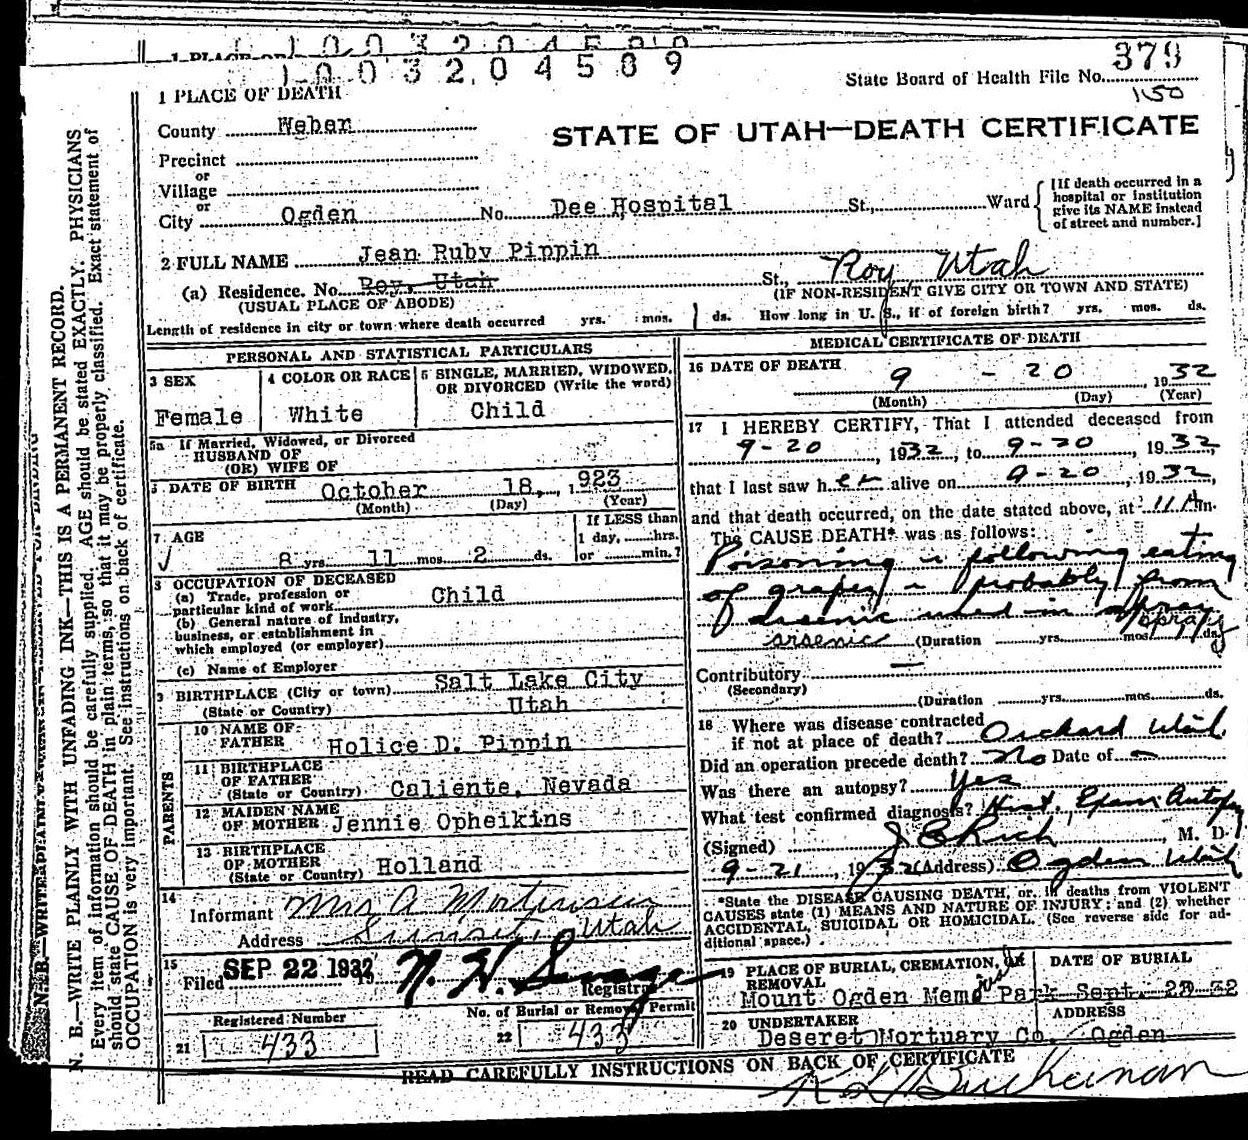 1003204589
379
State Board of Health File No.
1150
1 PLACE OF DEATH
County Weber
STATE OF UTAH—DEATH CERTIFICATE
Precinct
or
Village
or
City Ogden No. Dee Hospital St., Ward
[If death occurred in a
hospital or institution
give its NAME instead
of street and number.]
2 FULL NAME Jean Ruby Pippin
(a) Residence. No. Roy, Utah St., Roy Utah
(USUAL PLACE OF ABODE)
(IF NON-RESIDENT GIVE CITY OR TOWN AND STATE)
Length of residence in city or town where death occurred yrs. mos. ds. How long in U. S., if of foreign birth? yrs. mos. ds.
PERSONAL AND STATISTICAL PARTICULARS
3 SEX
Female
4 COLOR OR RACE
White
5 SINGLE, MARRIED, WIDOWED,
OR DIVORCED (Write the word)
Child
5a If Married, Widowed, or Divorced
HUSBAND OF
(OR) WIFE OF
DATE OF BIRTH October 18, 1923
(Month) (Day) (Year)
7 AGE
If LESS than
1 day, hrs.
or min.?
8 yrs. 11 mos. 2 ds.
8 OCCUPATION OF DECEASED
(a) Trade, profession or
particular kind of work Child
(b) General nature of industry,
business, or establishment in
which employed (or employer)
(c) Name of Employer
9 BIRTHPLACE (City or town) Salt Lake City
(State or Country) Utah
PARENTS
10 NAME OF
FATHER Holice D. Pippin
11 BIRTHPLACE
OF FATHER
(State or Country) Caliente, Nevada
12 MAIDEN NAME
OF MOTHER Jennie Opheikins
13 BIRTHPLACE
OF MOTHER
(State or Country) Holland
14
Informant Mrs A Mortensen
Address Sunset, Utah
15
Filed SEP 22 1932 19 N. H. Savage
Registrar
Registered Number
21 433
No. of Burial or Removal Permit
22 433
MEDICAL CERTIFICATE OF DEATH
16 DATE OF DEATH
9 - 20, 1932
(Month) (Day) (Year)
17 I HEREBY CERTIFY, That I attended deceased from
9-20, 1932, to 9-20, 1932,
that I last saw her alive on 9-20, 1932,
and that death occurred, on the date stated above, at 11 A m.
The CAUSE DEATH* was as follows:
Poisoning - following eating
of grapes - probably from
arsenic used in spray
arsenic (Duration yrs. mos. ds.
spray
Contributory
(Secondary)
(Duration yrs. mos. ds.
18 Where was disease contracted
if not at place of death? Orchard Utah.
Did an operation precede death? No Date of
Was there an autopsy? Yes
What test confirmed diagnosis? Hist. Exam Autopsy
(Signed) J E Rich, M. D.
9-21, 1932 (Address) Ogden Utah
*State the DISEASE CAUSING DEATH, or, in deaths from VIOLENT
CAUSES state (1) MEANS AND NATURE OF INJURY; and (2) whether
ACCIDENTAL, SUICIDAL OR HOMICIDAL. (See reverse side for ad-
ditional space.)
19 PLACE OF BURIAL, CREMATION, OR
REMOVAL
DATE OF BURIAL
Mount Ogden Memo Park Sept. 23 32
20 UNDERTAKER
ADDRESS
Deseret Mortuary Co. Ogden
READ CAREFULLY INSTRUCTIONS ON BACK OF CERTIFICATE
Buchanan
N. B.—WRITE PLAINLY WITH UNFADING INK—THIS IS A PERMANENT RECORD.
Every item of information should be carefully supplied. AGE should be stated EXACTLY. PHYSICIANS
should state CAUSE OF DEATH in plain terms, so that it may be properly classified. Exact statement of
OCCUPATION is very important. See instructions on back of certificate.